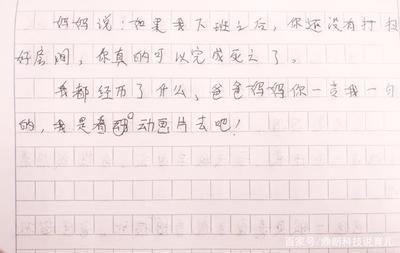 妈妈说：如果我下班之后，你还没有打扫
好房间，你真的可以完成死亡了。
我都经历了什么，爸爸妈妈你一言我一句
的，我是看动画片去吧！
百家号/帅朗科技说育儿